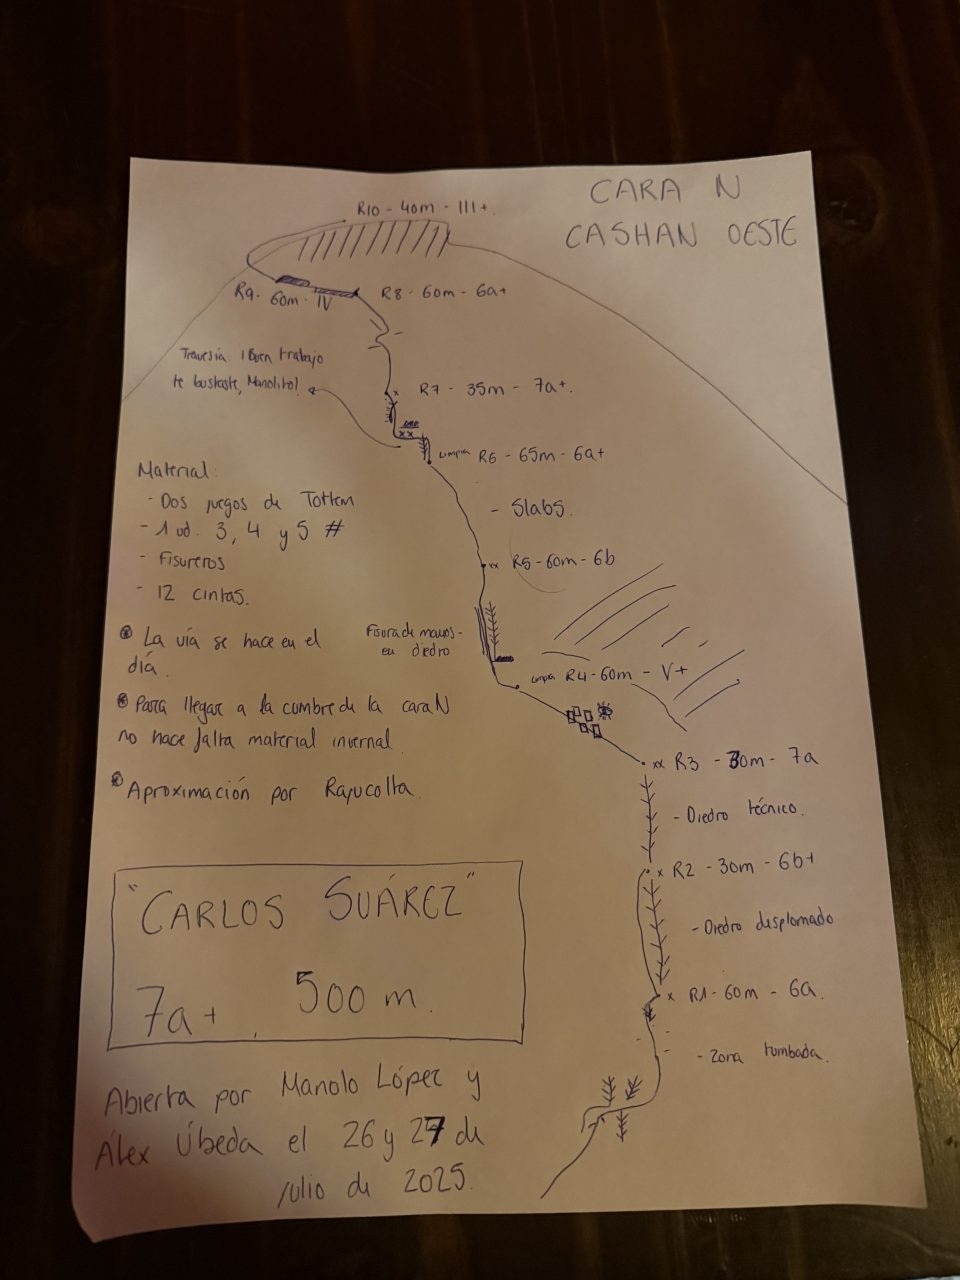 CARA N
CASHAN OESTE
R10 - 40m - III+
R9 - 60m - IV
R8 - 60m - 6a+
Travesía: ¡Buen trabajo
te buscaste, Manolito!
R7 - 35m - 7a+.
limpia R6 - 65m - 6a+
- Slabs.
xx R5 - 60m - 6b
Fisura de manos
en diedro
limpia R4 - 60m - V+
xx R3 - 30m - 7a
- Diedro técnico.
x R2 - 30m - 6b+
- Diedro desplomado
x R1 - 60m - 6a.
- Zona tumbada.
Material:
- Dos juegos de Tottem
- 1 ud. 3, 4 y 5 #
- Fisureros
- 12 cintas.
La vía se hace en el
día.
Para llegar a la cumbre de la cara N
no hace falta material invernal.
Aproximación por Rajucolta.
"CARLOS SUÁREZ"
7a+. 500 m.
Abierta por Manolo López y
Álex Úbeda el 26 y 27 de
julio de 2025.